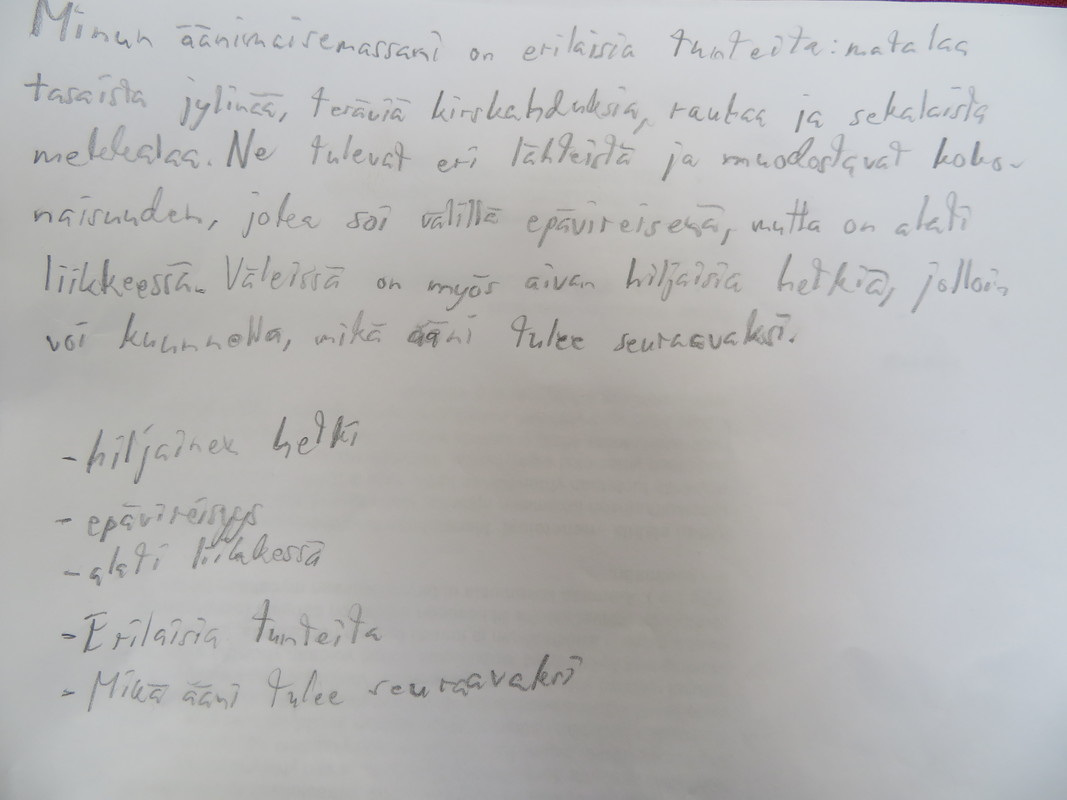 Minun äänimaisemassani on erilaisia tunteita: matalaa
tasaista jylinää, teräviä kirskahduksia, rautaa ja sekalaista
mekkalaa. Ne tulevat eri lähteistä ja muodostavat koko-
naisuuden, joka soi välillä epävireisenä, mutta on alati
liikkeessä. Väleissä on myös aivan hiljaisia hetkiä, jolloin
voi kuunnella, mikä ääni tulee seuraavaksi.
- hiljainen hetki
- epävireisyys
- alati liikkessä
- Erilaisia tunteita
- Mikä ääni tulee seuraavaksi